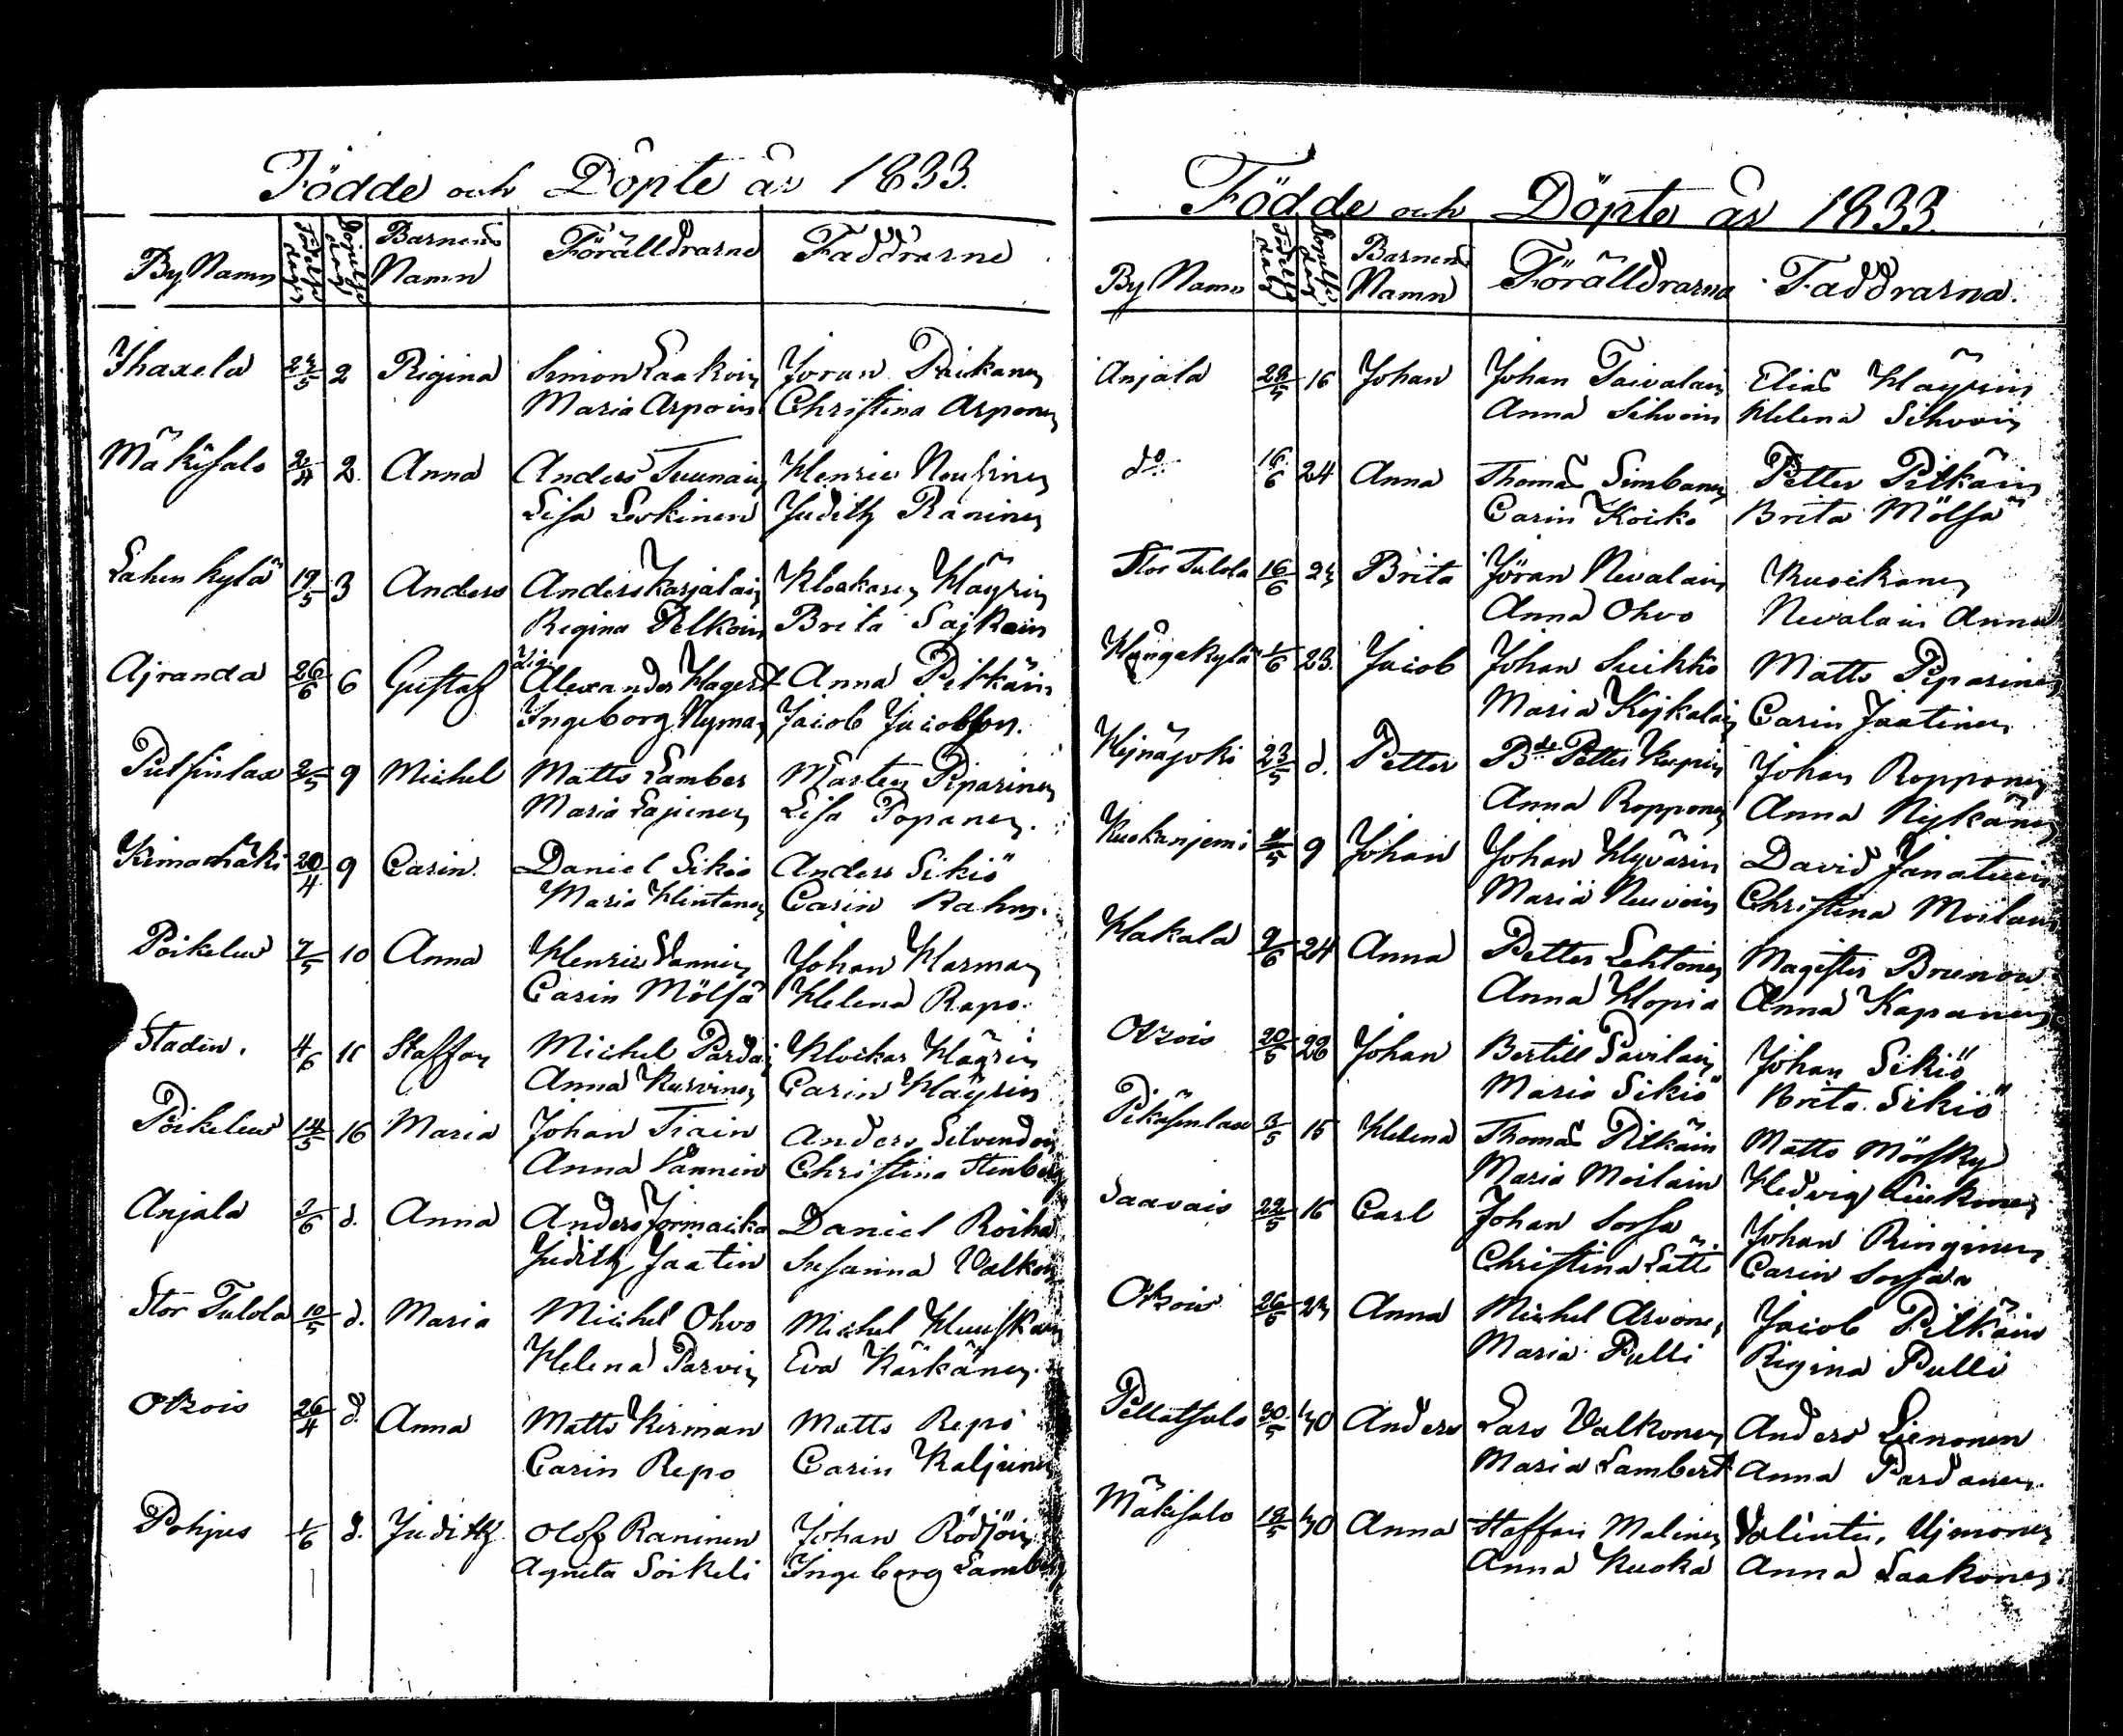 Födde och Döpte år 1833.
By Namn Födelse dag Döpelse dag Barnens Namn Föräldrarne Faddrarne
Ihaxela 24/5 2 Rigina Simon Laakoin Joran Paikanen
Maria Arpoin Christina Arponen
Mäkisalo 2/4 2. Anna Anders Tuunain Henric Nousinen
Lisa Leskinen Judith Räninen
Lahenkylä 19/5 3 Anders Anders Karjalain Klockaren Häyrin
Regina Pelkoin Brita Saikoin
Ajranda 26/6 6 Gustaf Alexander Hagert Anna Pitkäin
Ingeborg Nyman Jacob Jacobsson.
Putsinlax 2/5 9 Michel Matts Lamber Mårten Piparinen
Maria Lapinen Lisa Popanen.
Kirmamäki 20/4 9 Carin. Daniel Sikio Anders Sikiö
Maria Hintanen Carin Rahm.
Poikelus 7/5 10 Anna Henric Vannin Johan Harman
Carin Mölsä Helena Repo.
Staden. 4/6 11 Staffan Michel Pärdäi Klockar Häyrin
Anna Kurvinen Carin Häyrin
Poikelus 14/5 16 Maria Johan Tiain Anders Silvendoin
Anna Vannin Christina Stenberg
Anjala 3/6 d. Anna Anders Jormaicka Daniel Roiha
Judith Jaatin Susanna Valkon
Stor Tulola 10/5 d. Maria Michel Ohvo Michel Huuskain
Helena Parvin Eva Kärkänen.
Otzois 26/4 d. Anna Matts Hirman Matts Repo
Carin Repo Carin Kaljunen
Pohjus 1/6 d. Judith Olof Raninen Johan Rödjöin
Agneta Soikeli Ingeborg Lamberg
Födde och Döpte år 1833.
By Namn Födelse dag Döpelse dag Barnens Namn Föräldrarna Faddrarna.
Anjala 28/5 16 Johan Johan Taivalain Elias Häyrin
Anna Sihvoin Helena Sihvoin
do 16/6 24 Anna Thomas Simbanen Petter Pitkäin
Carin Koicko Brita Mölsä
Stor Tulola 16/6 24 Brita Jöran Nevalain Kuoikanen
Anna Ohvo Nevalain Anna
Hångakylä 1/6 23. Jacob Johan Suikko Matts Piparinen
Maria Kojkalain Carin Jaatinen
Hejnäjoki 23/5 d. Petter Bde Petter Kupin Johan Ropponen
Anna Ropponen Anna Nykänen
Kuokanjemi 4/5 9 Johan Johan Hyvärin David Janatuin
Maria Neuvoin Christina Moilain
Hakala 9/6 24 Anna Petter Lehtonen Magister Brunow
Anna Hopia Anna Kapanen
Otzois 20/5 28 Johan Bertill Pavilain Johan Sikiö
Maria Sikiö Brita Sikiö
Pikäsenlax 3/5 15 Helena Thomas Pitkäin Matts Mörsky
Maria Moilain Hedvig Liukonen
Saavais 22/5 16 Carl Johan Sorsa Johan Ringinen
Christina Lätti Carin Sorsa
Otzois 26/5 24 Anna Michel Arvonen Jacob Pitkäin
Maria Pulli Rigina Pulli
Pellatsalo 30/5 30 Anders Lars Valkonen Anders Liemonen
Maria Lambert Anna Pardanen.
Mäkisalo 18/5 30 Anna Staffan Malinen Valintin Ujmonen
Anna Kuoka Anna Laakonen